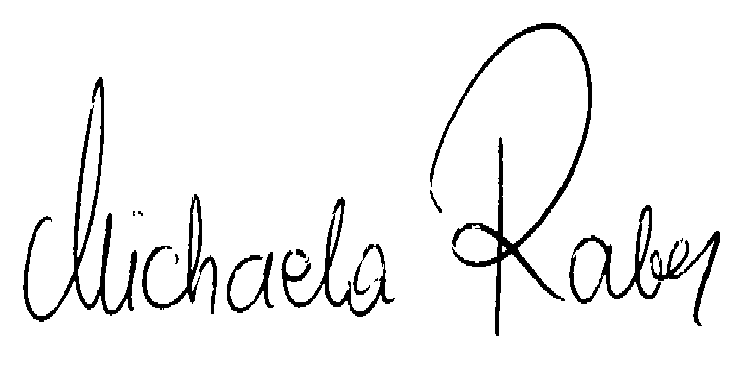 Michaela Raber